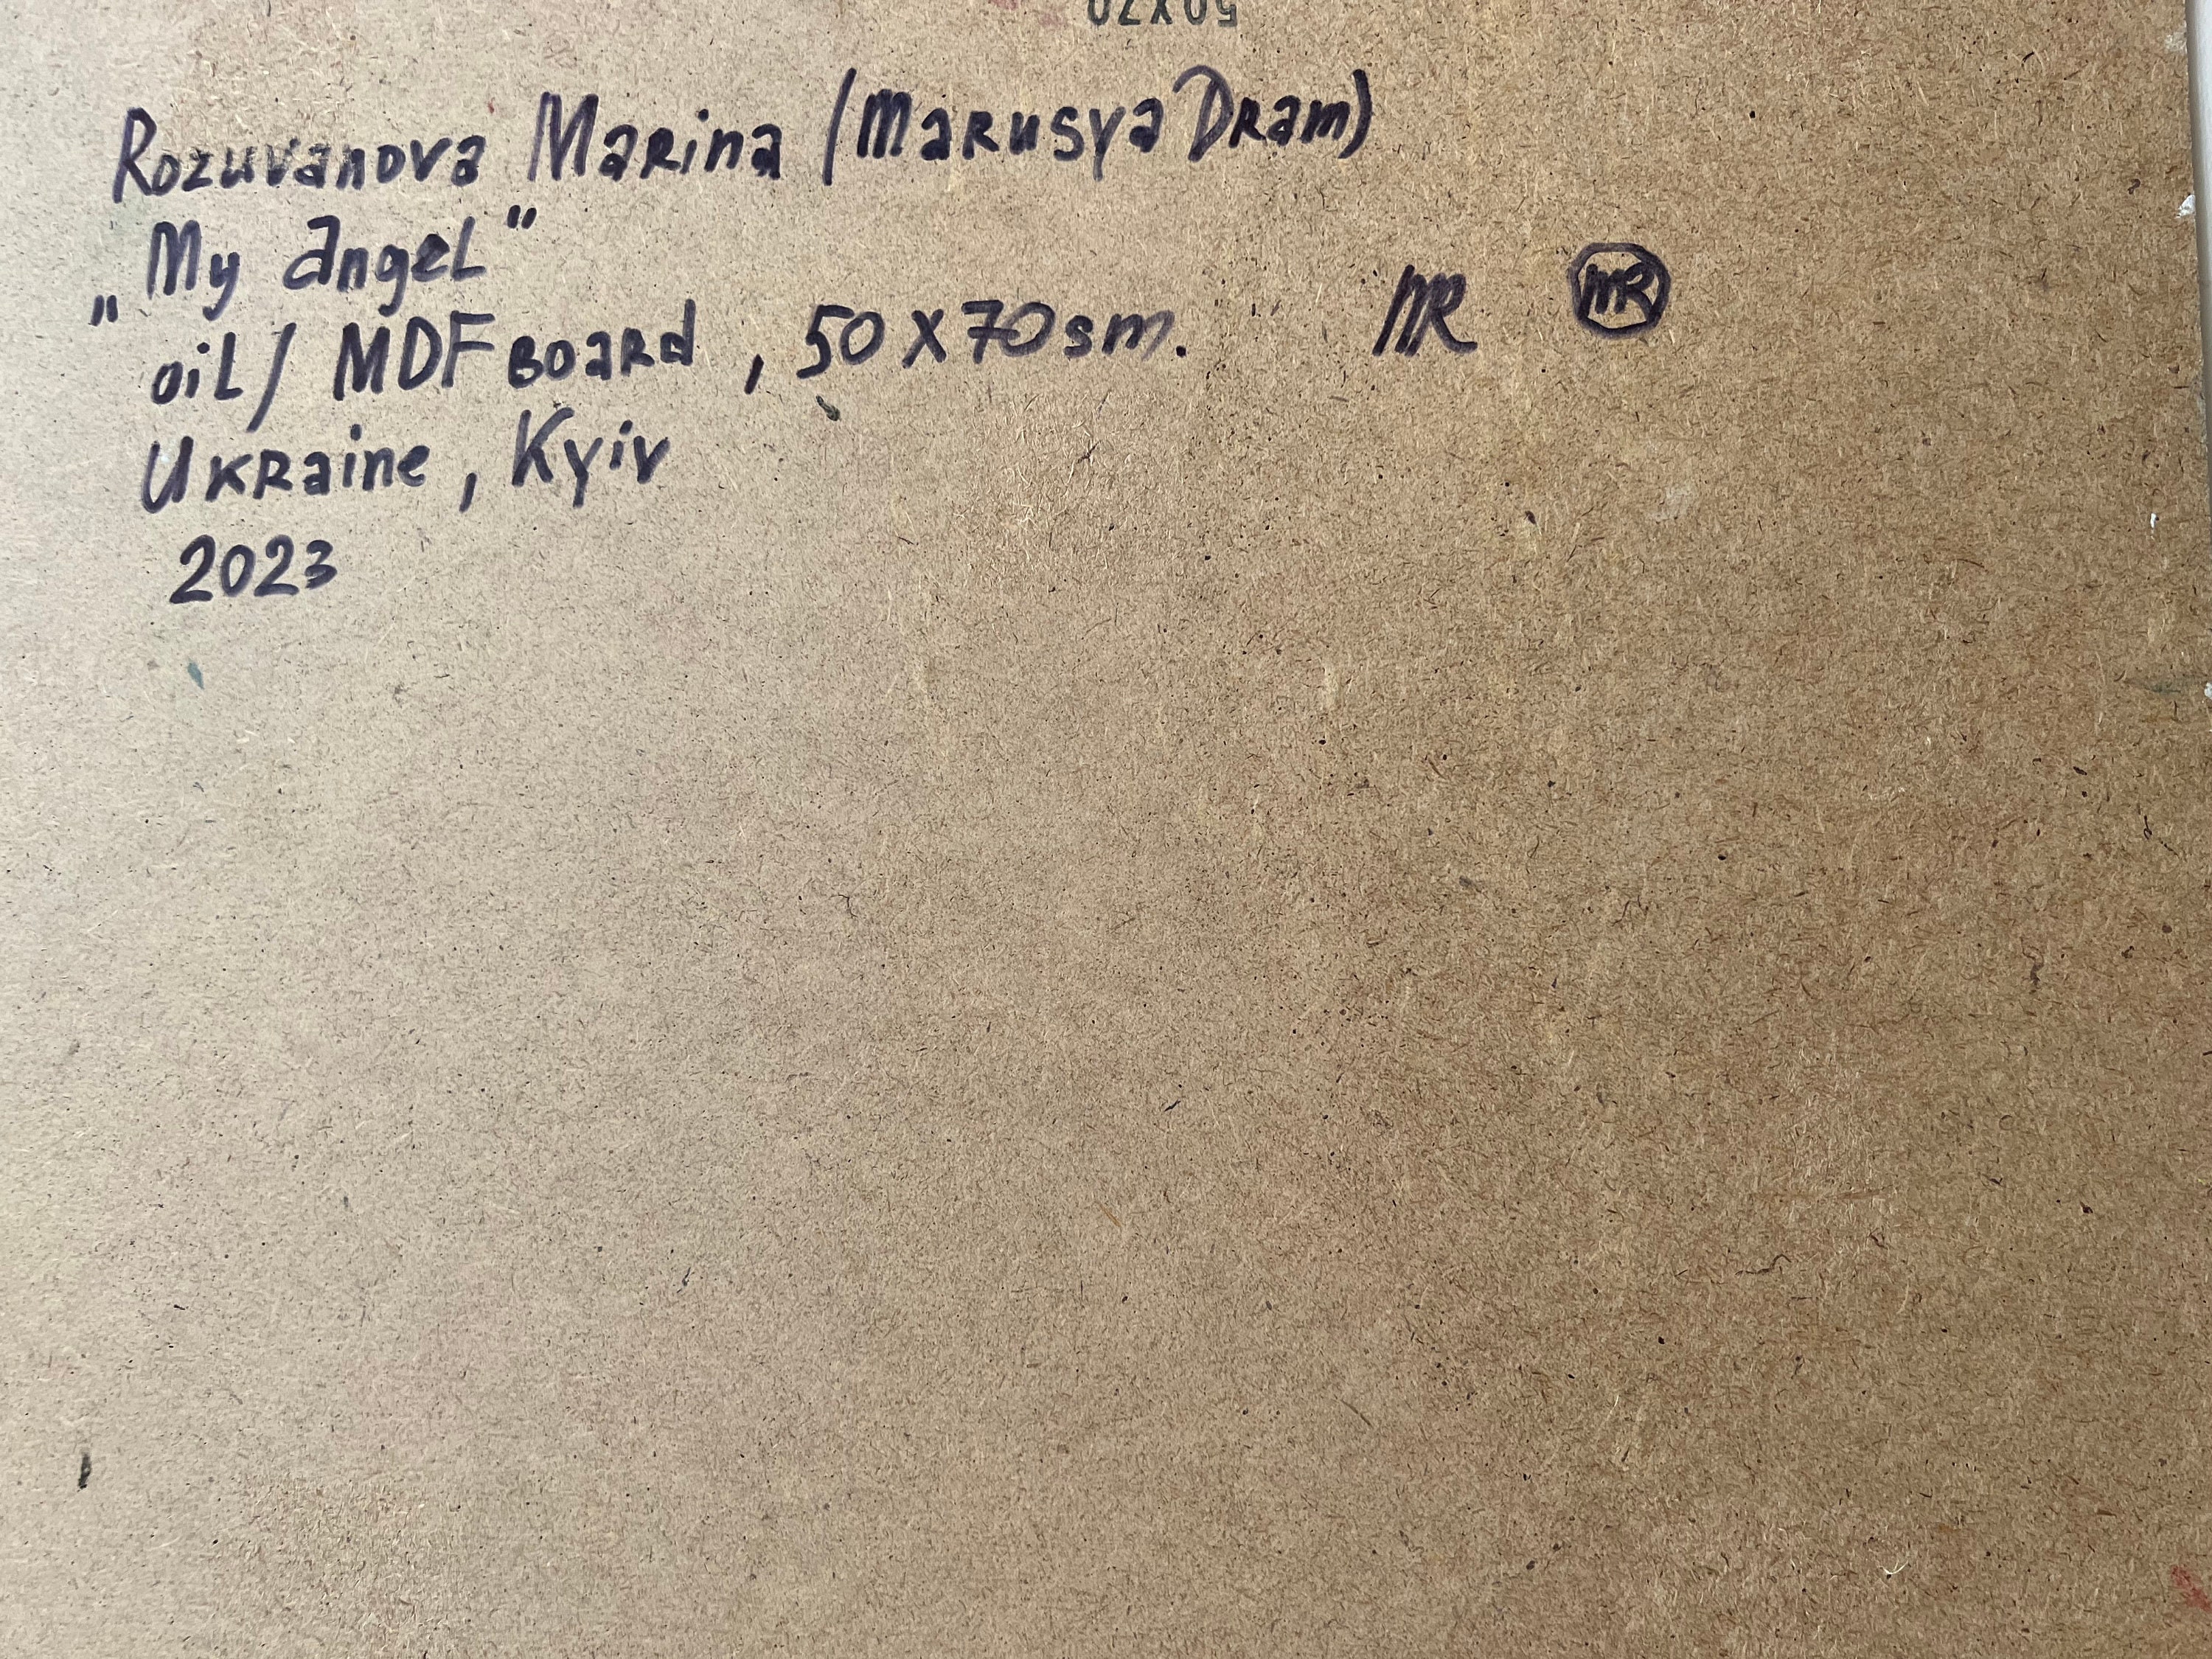 50X70
Rozuvanova Marina (Marusya Dram)
„My angel"
oil/ MDF board, 50x70sm. MR MR
Ukraine, Kyiv
2023